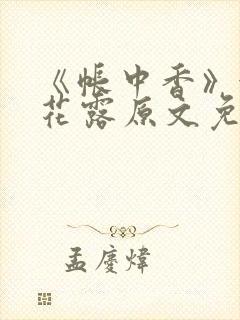 《帐中香》
花露原文免
孟庆炜